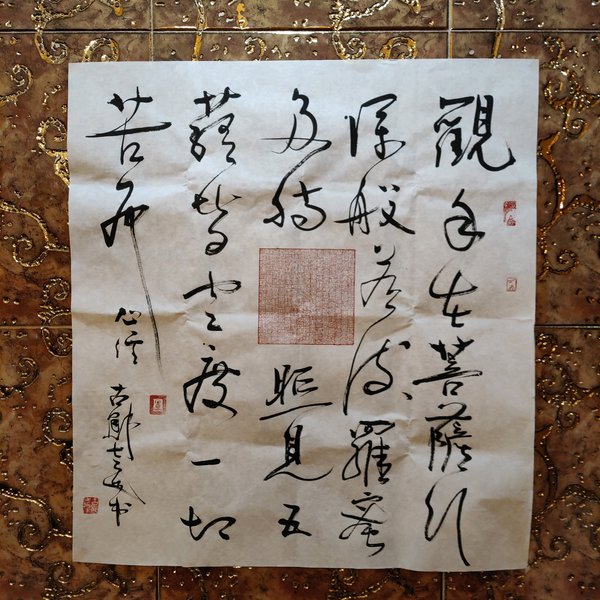 觀自在菩薩行
深般若波羅蜜
多時照見五
蘊皆空度一切
苦厄
心經